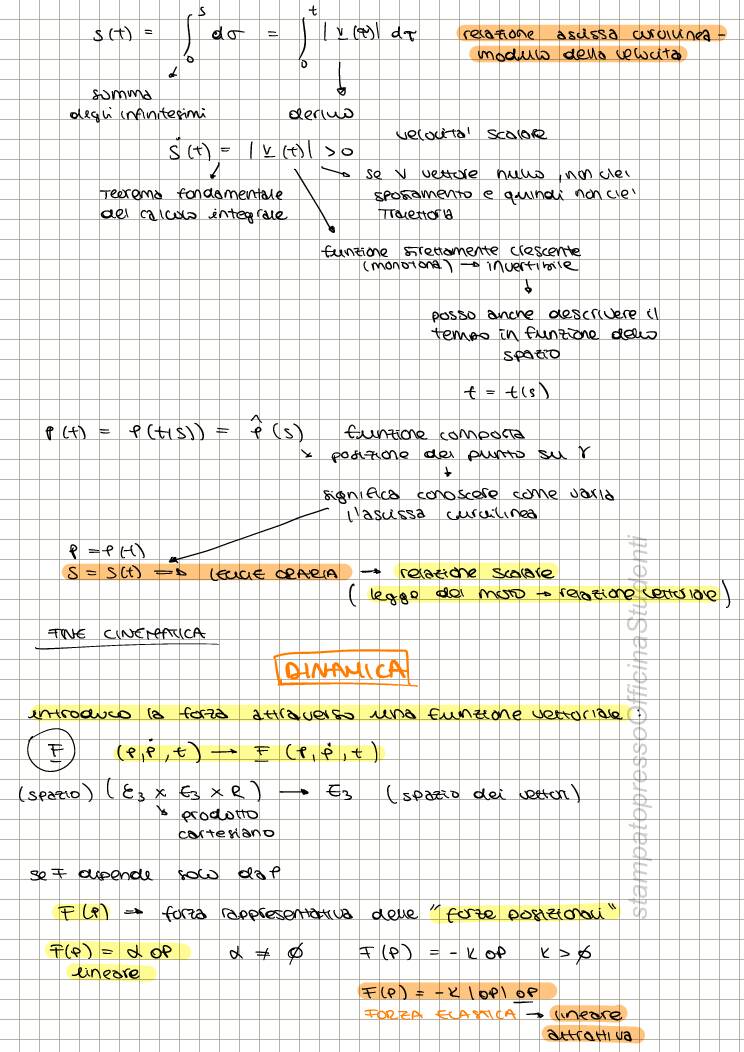 s(t) = ∫₀ˢ dσ = ∫₀ᵗ |v(τ)| dτ relazione ascissa curvilinea -
modulo della velocità
somma
degli infinitesimi
derivo
velocita' scalare
ṡ(t) = |v(t)| > 0
se v vettore nullo, non c'è
spostamento e quindi non c'è
traiettoria
Teorema fondamentale
del calcolo integrale
funzione strettamente crescente
(monotona) → invertibile
posso anche descrivere il
tempo in funzione dello
spazio
t = t(s)
P(t) = P(t(s)) = P̂(s) funzione composta
posizione del punto su γ
significa conoscere come varia
l'ascissa curvilinea
P = P(t)
S = S(t) => LEGGE ORARIA → relazione scalare
(legge del moto → relazione vettoriale)
FINE CINEMATICA
DINAMICA
introduco la forza attraverso una funzione vettoriale:
F (P, Ṗ, t) → F (P, Ṗ, t)
(spazio) (E₃ x E₃ x R) → E₃ (spazio dei vettori)
prodotto
cartesiano
se F dipende solo da P
F(P) → forza rappresentativa delle "forze posizionali"
F(P) = α OP α ≠ ∅ F(P) = -K OP K > ∅
lineare
F(P) = -K |OP| OP
FORZA ELASTICA → lineare
attrattiva
stampatopressoOfficinaStudenti